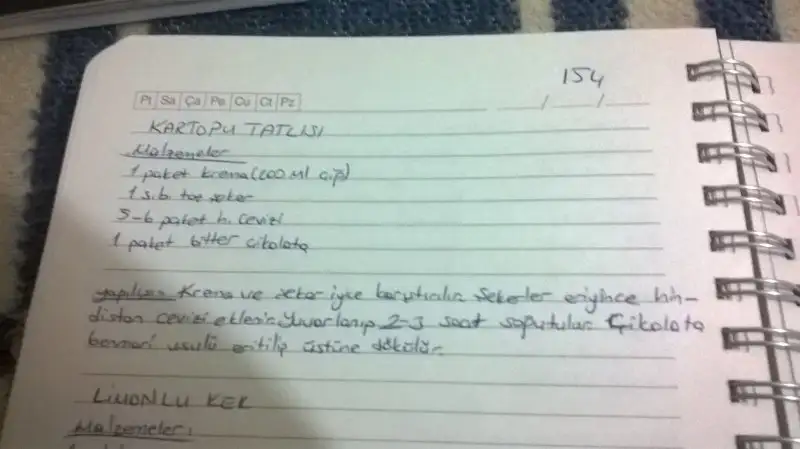 154
Pt Sa Ça Pe Cu Ct Pz
__/__/__
KARTOPU TATLISI
Malzemeler
1 paket krema (200 ml
1 s.b. toz şeker
5-6 paket h. cevizi
1 paket bitter çikolata
yapılışı Krema ve şeker iyice karıştırılır. Şekerler eriyince hin-
distan cevizi eklenir. Yuvarlanıp 2-3 saat soğutulur. Çikolata
benmari usulü eritilip üstüne dökülür.
LİMONLU KEK
Malzemeler: